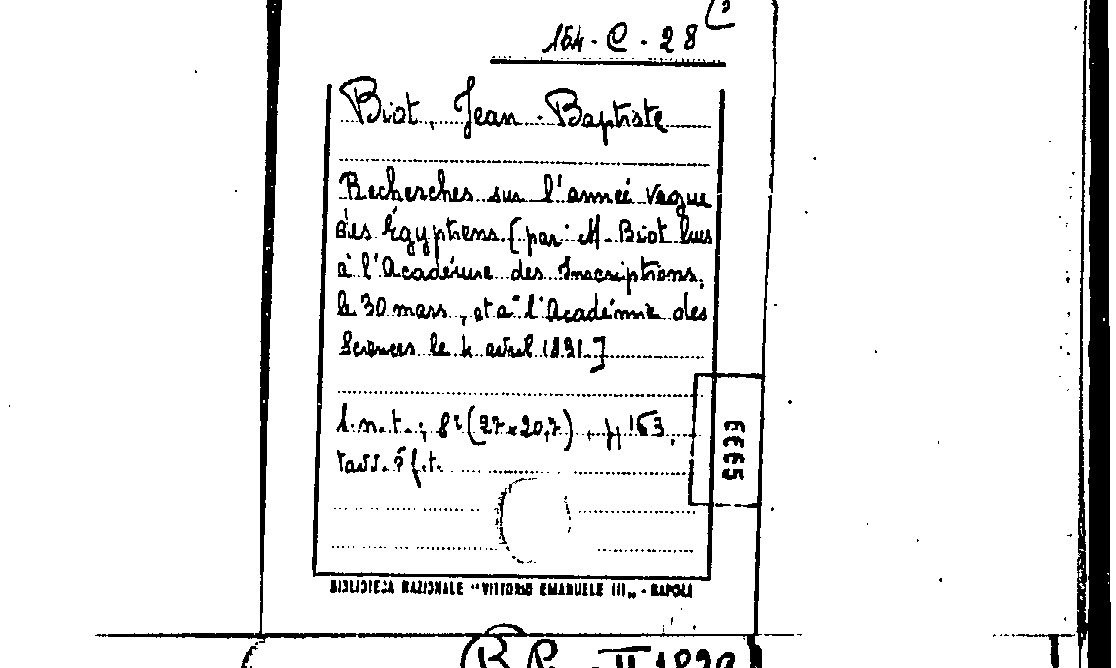 154 · C · 28
Biot, Jean-Baptiste
Recherches sur l'anneé vague
des Égyptiens [par M. Biot lues
à l'Académie des Inscriptions,
le 30 mars, et à l'Académie des
Sciences le 4 avril 1831]
s.n.t.; 8° (27×20,7), p. 163,
tavv. 3 f.t.
BIBLIOTECA NAZIONALE "VITTORIO EMANUELE III„ - NAPOLI